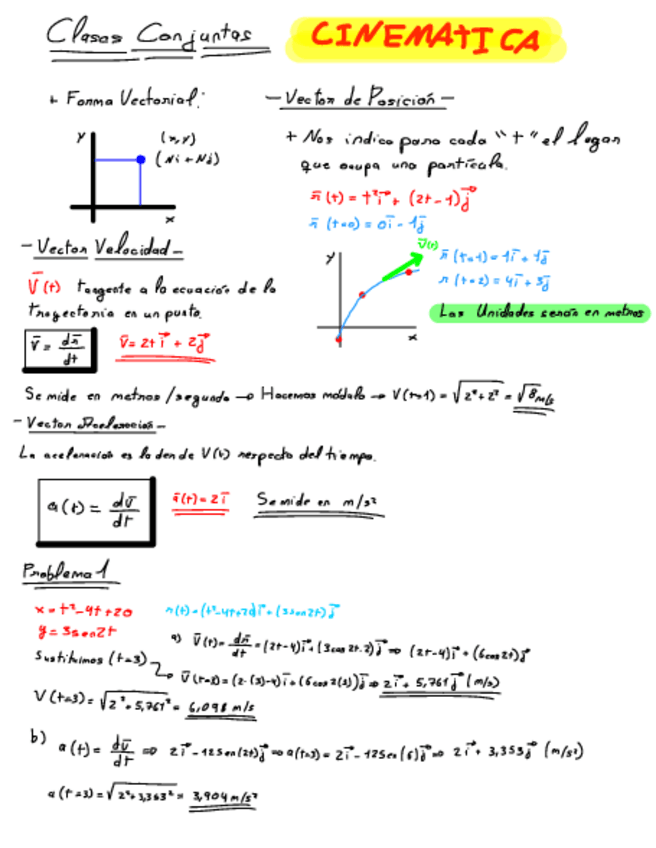 Clases Conjuntas
CINEMATICA
+ Forma Vectorial:
y
(x,y)
(Ni + Nj)
x
- Vector de Posición -
+ Nos indica para cada "t" el lugar
que ocupa una partícula.
r̄(t) = t²i⃗ + (2t-1)j⃗
r̄(t=0) = 0i⃗ - 1j⃗
y
v̄(t)
x
r̄(t=1) = 1i⃗ + 1j⃗
r(t=2) = 4i⃗ + 3j⃗
Las Unidades serán en metros
- Vector Velocidad -
V̄(t) tangente a la ecuación de la
trayectoria en un punto.
v̄ = dr̄/dt
v̄ = 2ti⃗ + 2j⃗
Se mide en metros/segundo → Hacemos módulo → V(t=1) = √2²+2² = √8 m/s
- Vector Aceleración -
La aceleración es la der de V(t) respecto del tiempo.
a(t) = dv̄/dt
ā(t) = 2i⃗
Se mide en m/s²
Problema 1
x = t²-4t+20
y = 3sen2t
r(t) = (t²-4t+20)i⃗ + (3sen2t)j⃗
a) V̄(t) = dr̄/dt = (2t-4)i⃗ + (3cos2t·2)j⃗ ⇒ (2t-4)i⃗ + (6cos2t)j⃗
Sustituimos (t=3)
V̄(t=3) = (2·(3)-4)i⃗ + (6cos2(3))j⃗ ⇒ 2i⃗ + 5,761j⃗ (m/s)
V(t=3) = √2²+5,761² = 6,098 m/s
b) a(t) = dv̄/dt ⇒ 2i⃗ - 12Sen(2t)j⃗ ⇒ a(t=3) = 2i⃗ - 12Sen(6)j⃗ ⇒ 2i⃗ + 3,353j⃗ (m/s²)
a(t=3) = √2²+3,353² = 3,904 m/s²